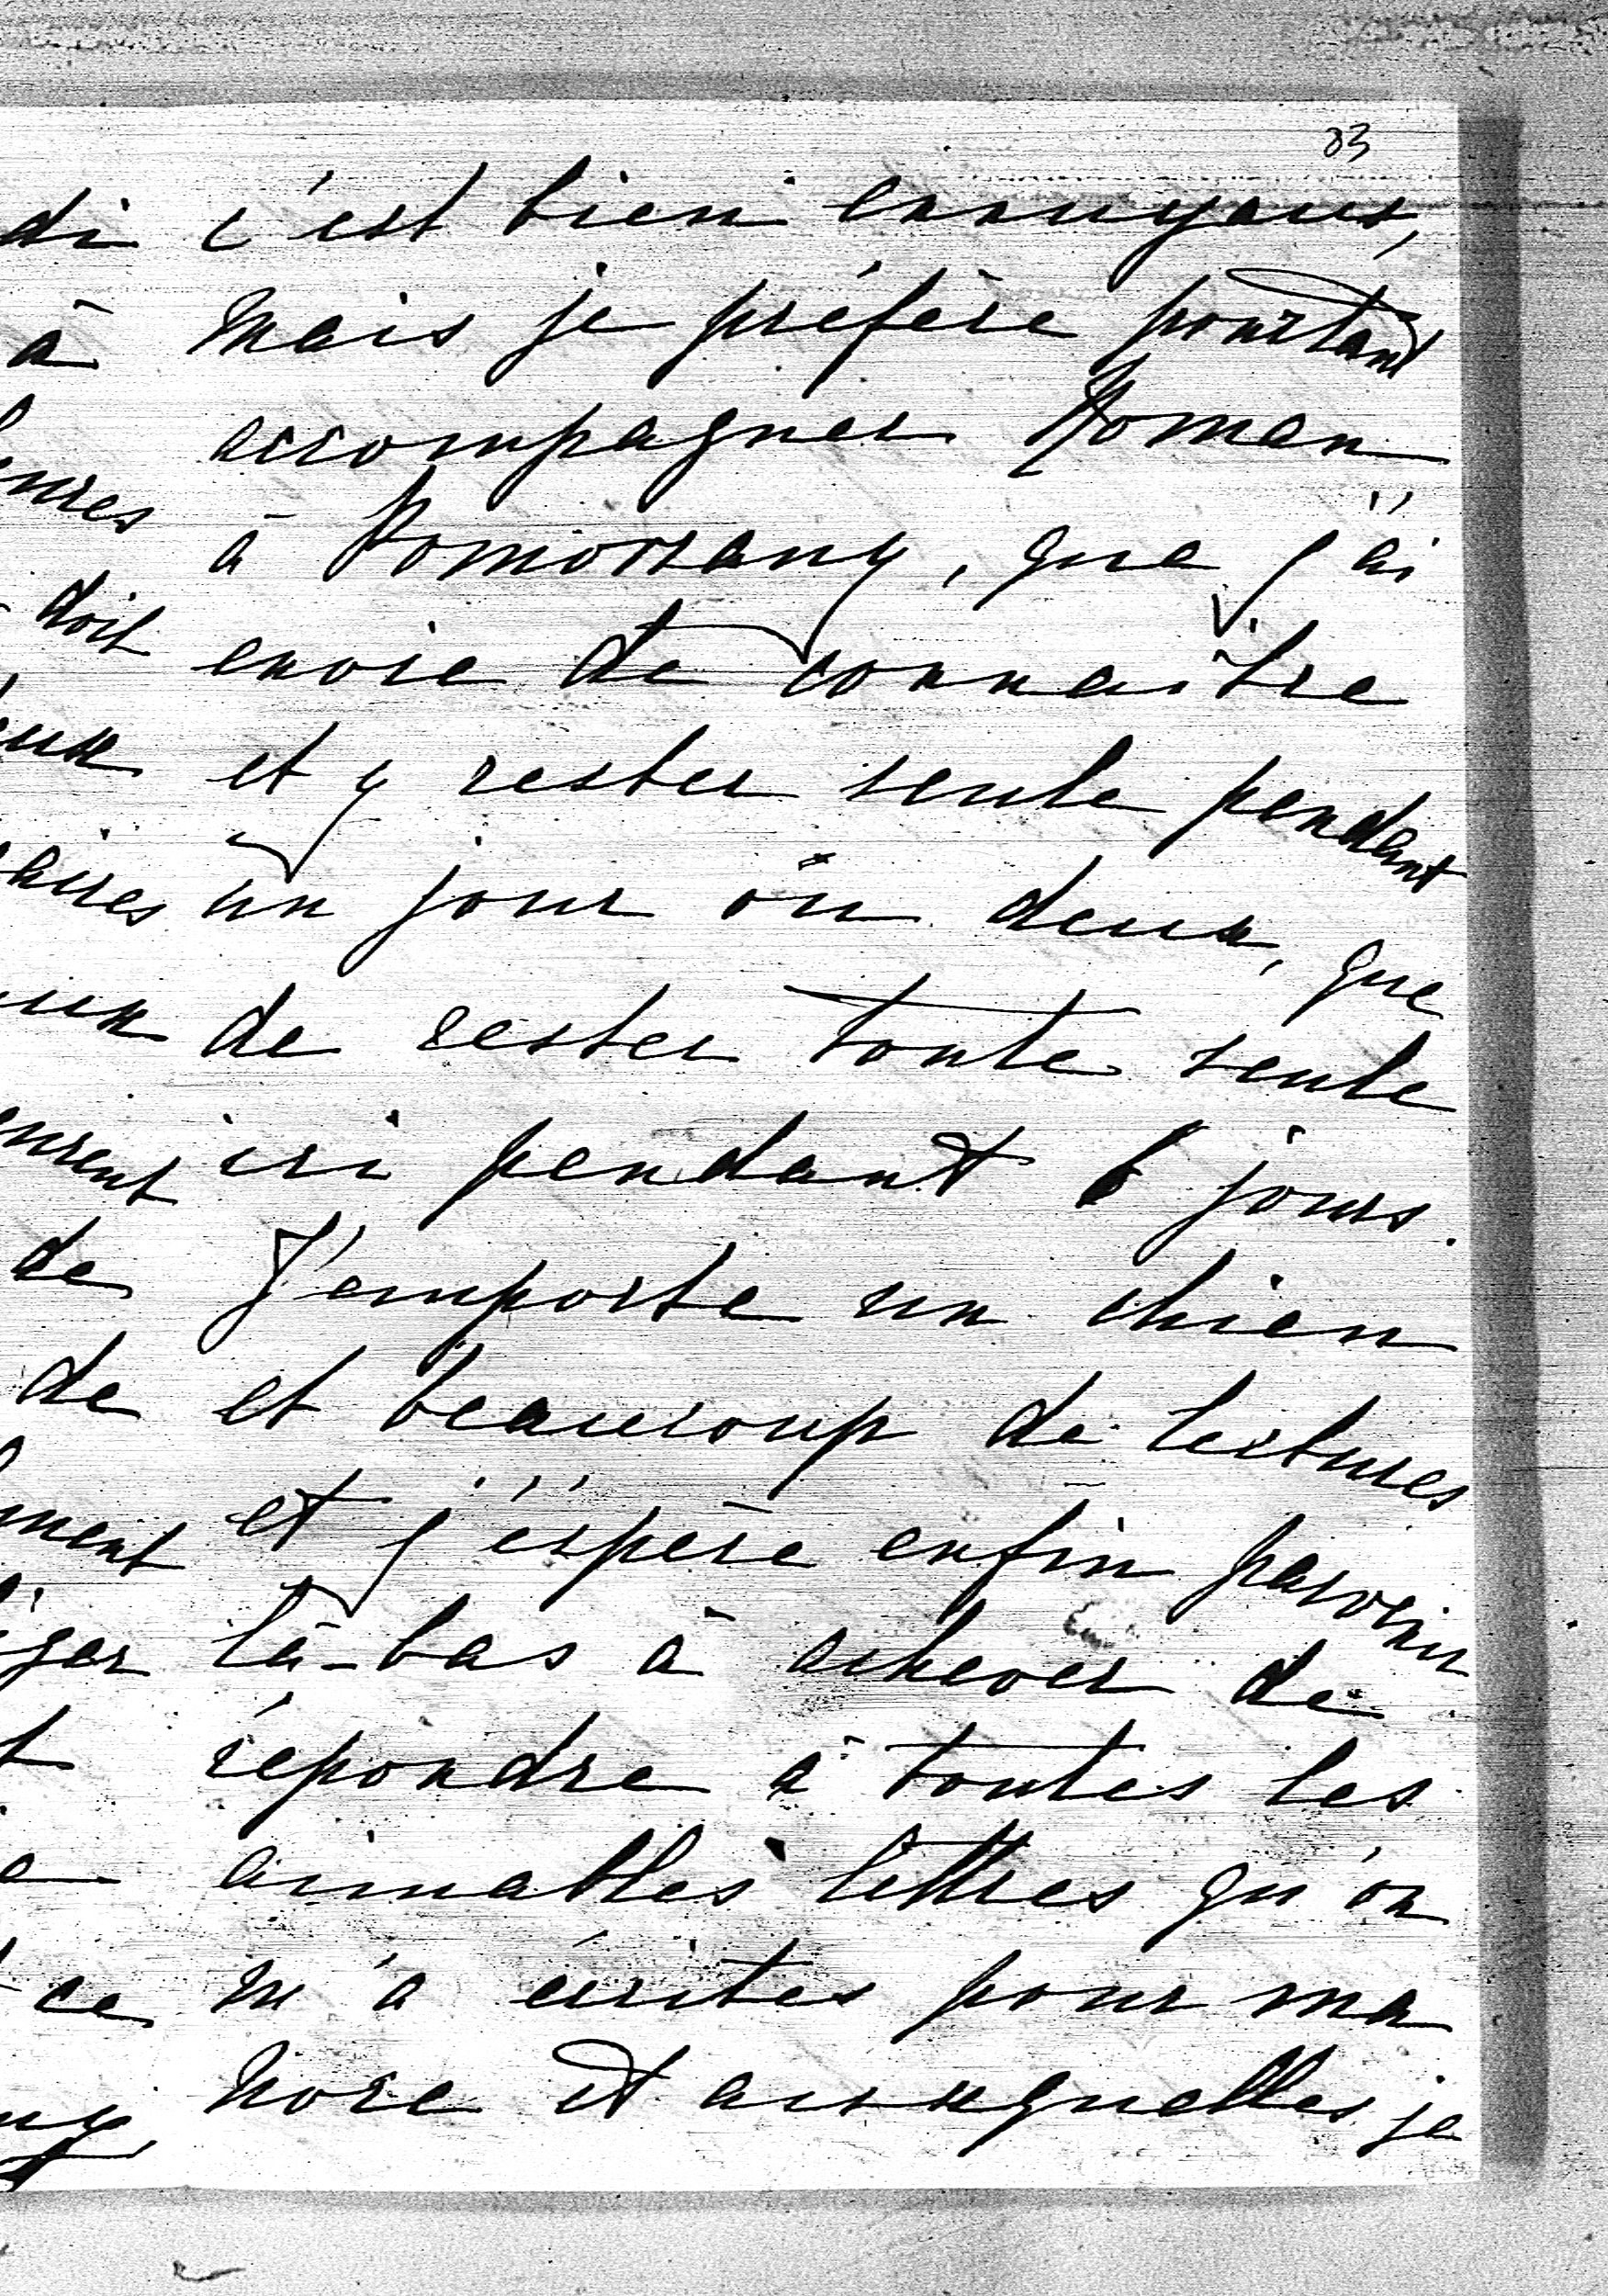 83
c'est bien ennuyeux,
mais je préfère pourtant
accompagner Roman
à Pomorzany, que j'ai
envie de connaître
et y rester seule pendant
un jour ou deux, que
de rester toute seule
ici pendant 6 jours.
J'emporte un chien
et beaucoup de lectures
et j'éspère enfin parvenir
là-bas à achever de
répondre à toutes les
aimables lettres qu'on
m'a écrites pour ma
noce et auxquelles je
di
à
doit
de
de
ce